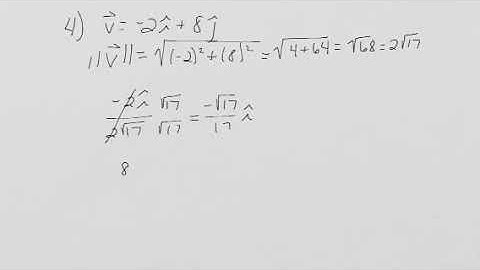 4) v⃗ = -2î + 8ĵ
||v⃗|| = √((-2)² + (8)²) = √(4+64) = √68 = 2√17
-2î/2√17 √17/√17 = -√17/17 î
8